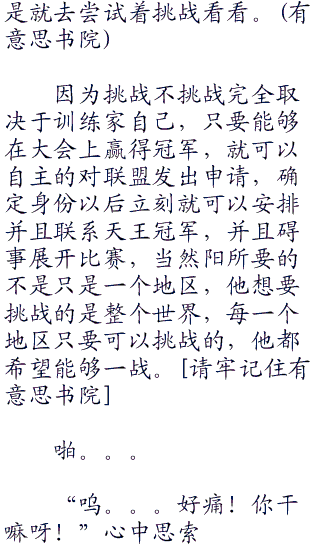 是就去尝试着挑战看看。（有
意思书院）
因为挑战不挑战完全取
决于训练家自己，只要能够
在大会上赢得冠军，就可以
自主的对联盟发出申请，确
定身份以后立刻就可以安排
并且联系天王冠军，并且碍
事展开比赛，当然阳所要的
不是只是一个地区，他想要
挑战的是整个世界，每一个
地区只要可以挑战的，他都
希望能够一战。[请牢记住有
意思书院]
啪。。。
“呜。。。好痛！你干
嘛呀！”心中思索